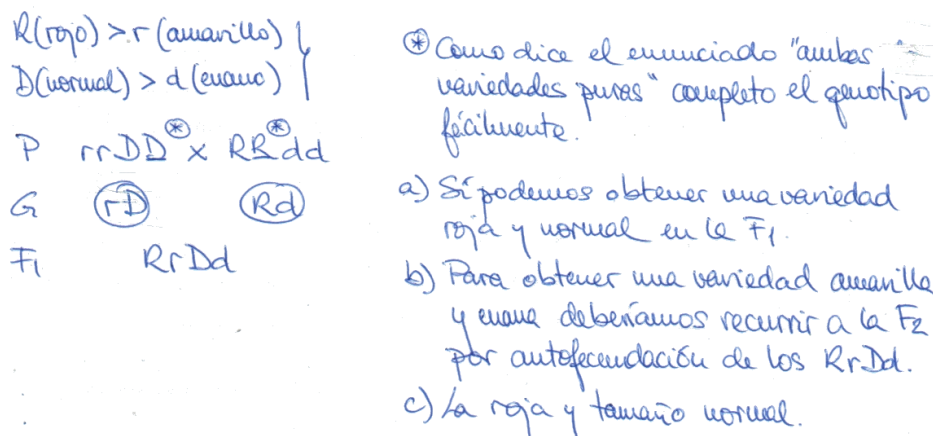 R(rojo) > r (amarillo)
D(normal) > d (enano)
P rrDD⊛ x RR⊛dd
G rD Rd
F1 RrDd
⊛ Como dice el enunciado "ambas
variedades puras" completo el genotipo
fácilmente.
a) Sí podemos obtener una variedad
roja y normal en la F1.
b) Para obtener una variedad amarilla
y enana deberíamos recurrir a la F2
por autofecundación de los RrDd.
c) La roja y tamaño normal.